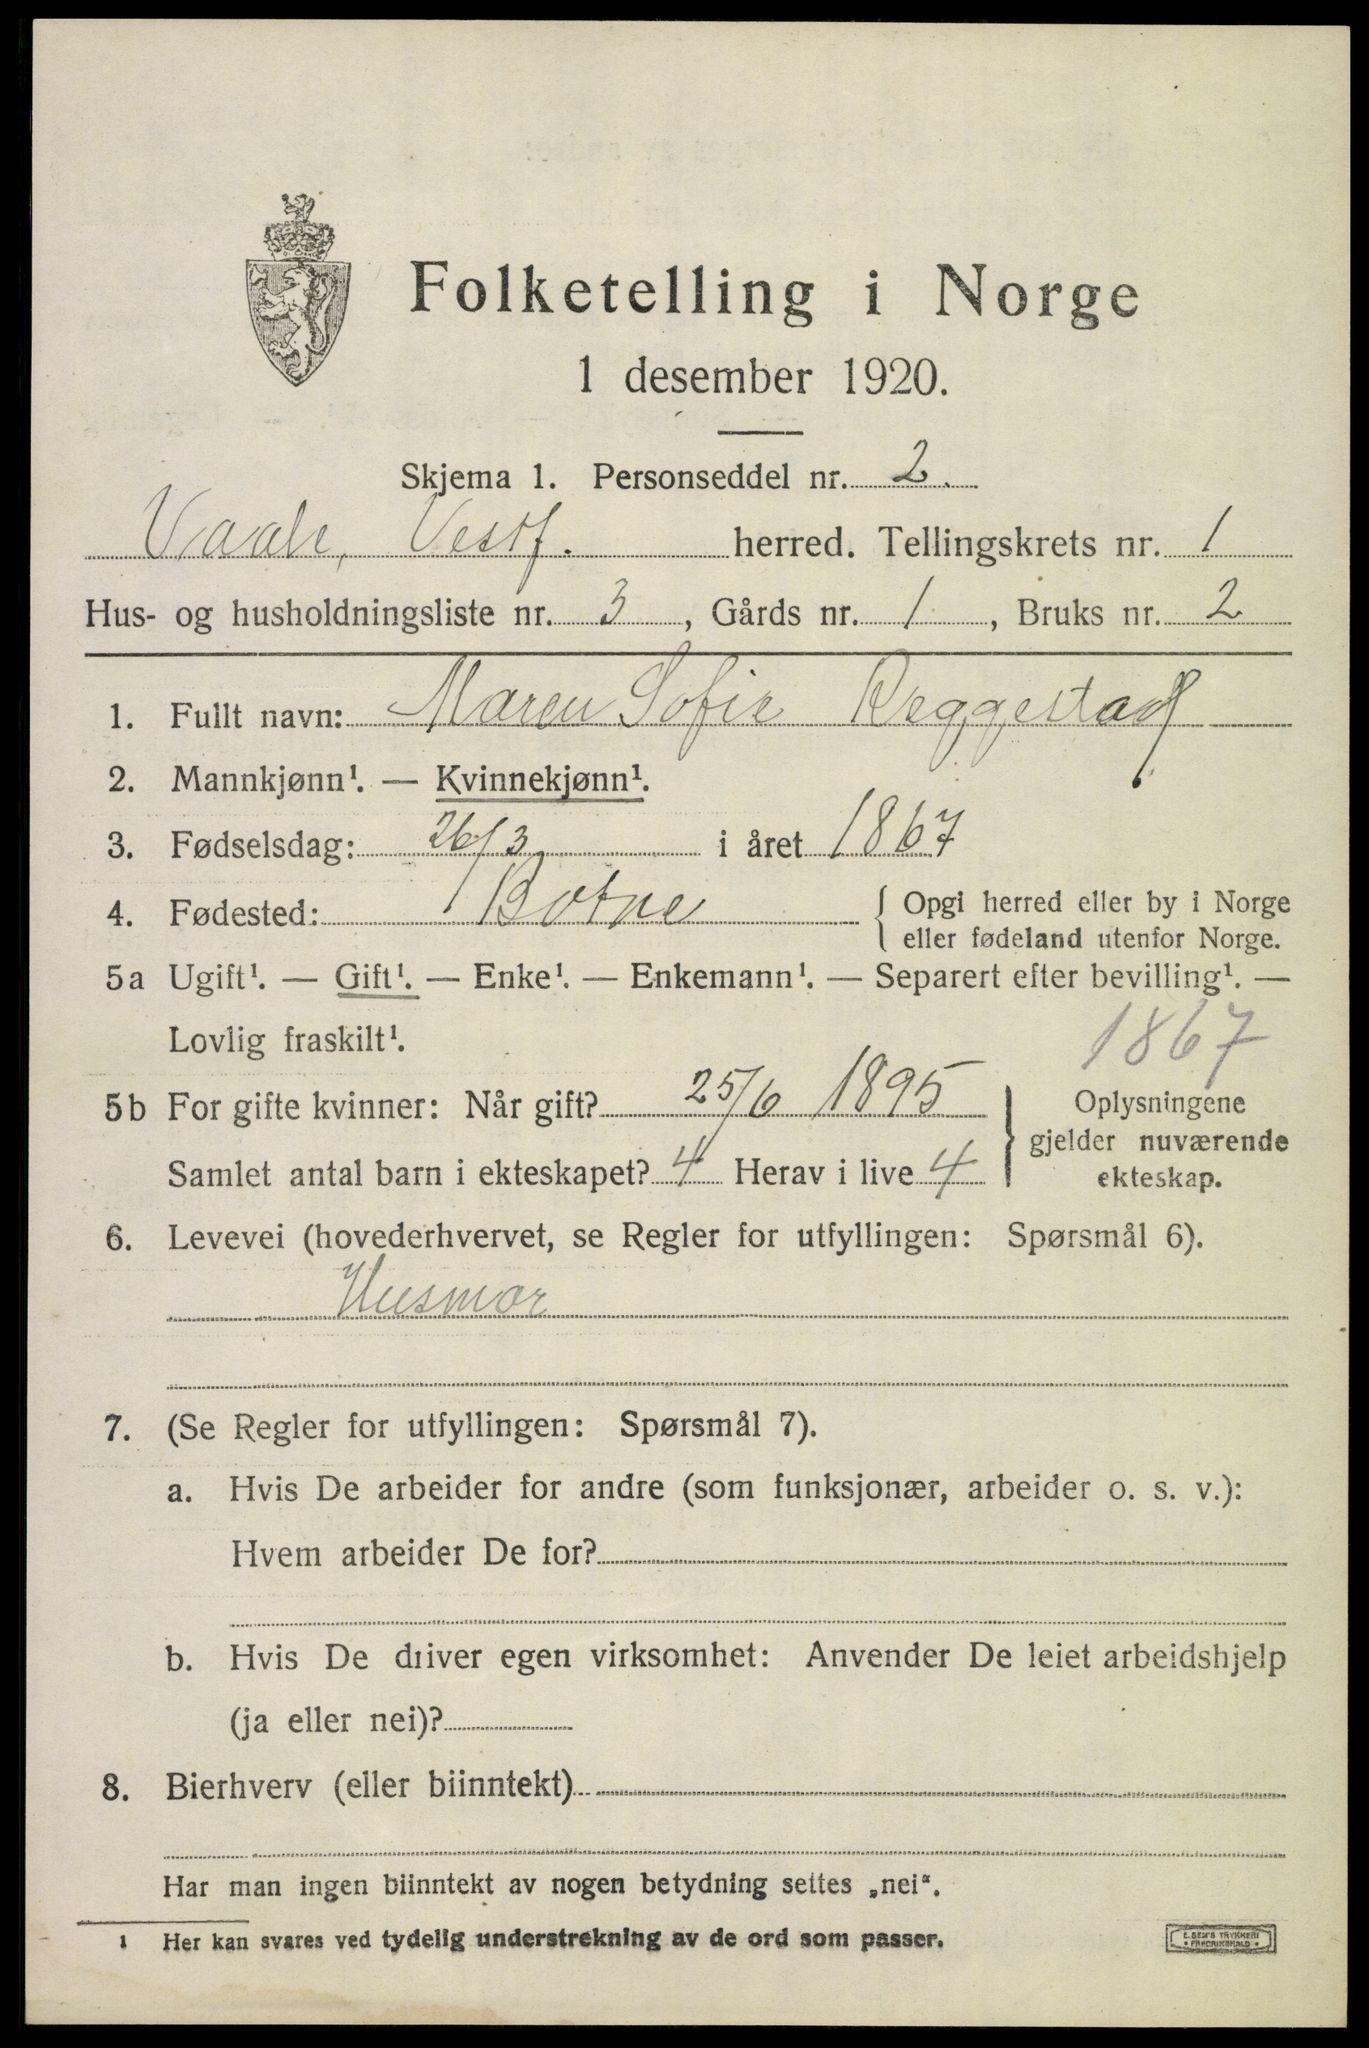 Folketelling i Norge
1 desember 1920.
Skjema 1. Personseddel nr. 2.
Vaale, Vestf. herred. Tellingskrets nr. 1
Hus- og husholdningsliste nr. 3, Gårds nr. 1, Bruks nr. 2
1. Fullt navn: Maren Sofie Reggestad
2. Mannkjønn¹. — Kvinnekjønn¹.
3. Fødselsdag: 26/3 i året 1867
4. Fødested: Botne { Opgi herred eller by i Norge
eller fødeland utenfor Norge.
5a Ugift¹. — Gift¹. — Enke¹. — Enkemann¹. — Separert efter bevilling¹. —
Lovlig fraskilt¹. 1867
5b For gifte kvinner: Når gift? 25/6 1895 } Oplysningene
gjelder nuværende
Samlet antal barn i ekteskapet? 4 Herav i live 4 ekteskap.
6. Levevei (hovederhvervet, se Regler for utfyllingen: Spørsmål 6).
Husmor
7. (Se Regler for utfyllingen: Spørsmål 7).
a. Hvis De arbeider for andre (som funksjonær, arbeider o. s. v.):
Hvem arbeider De for?
b. Hvis De driver egen virksomhet: Anvender De leiet arbeidshjelp
(ja eller nei)?
8. Bierhverv (eller biinntekt)
Har man ingen biinntekt av nogen betydning settes „nei“.
1 Her kan svares ved tydelig understrekning av de ord som passer.
E. SEM'S TRYKKERI
• FREDRIKSHALD •